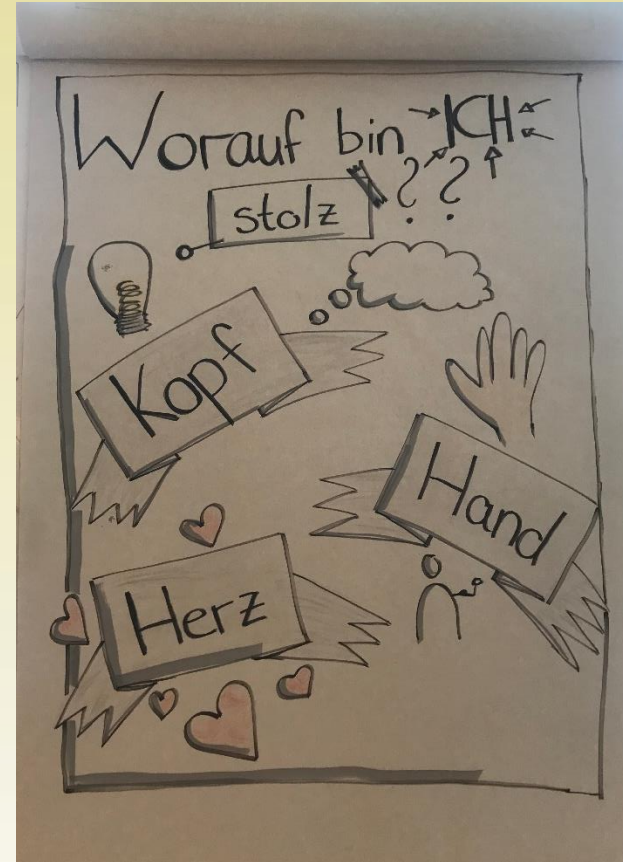 Worauf bin ICH
stolz ??
Kopf
Hand
Herz